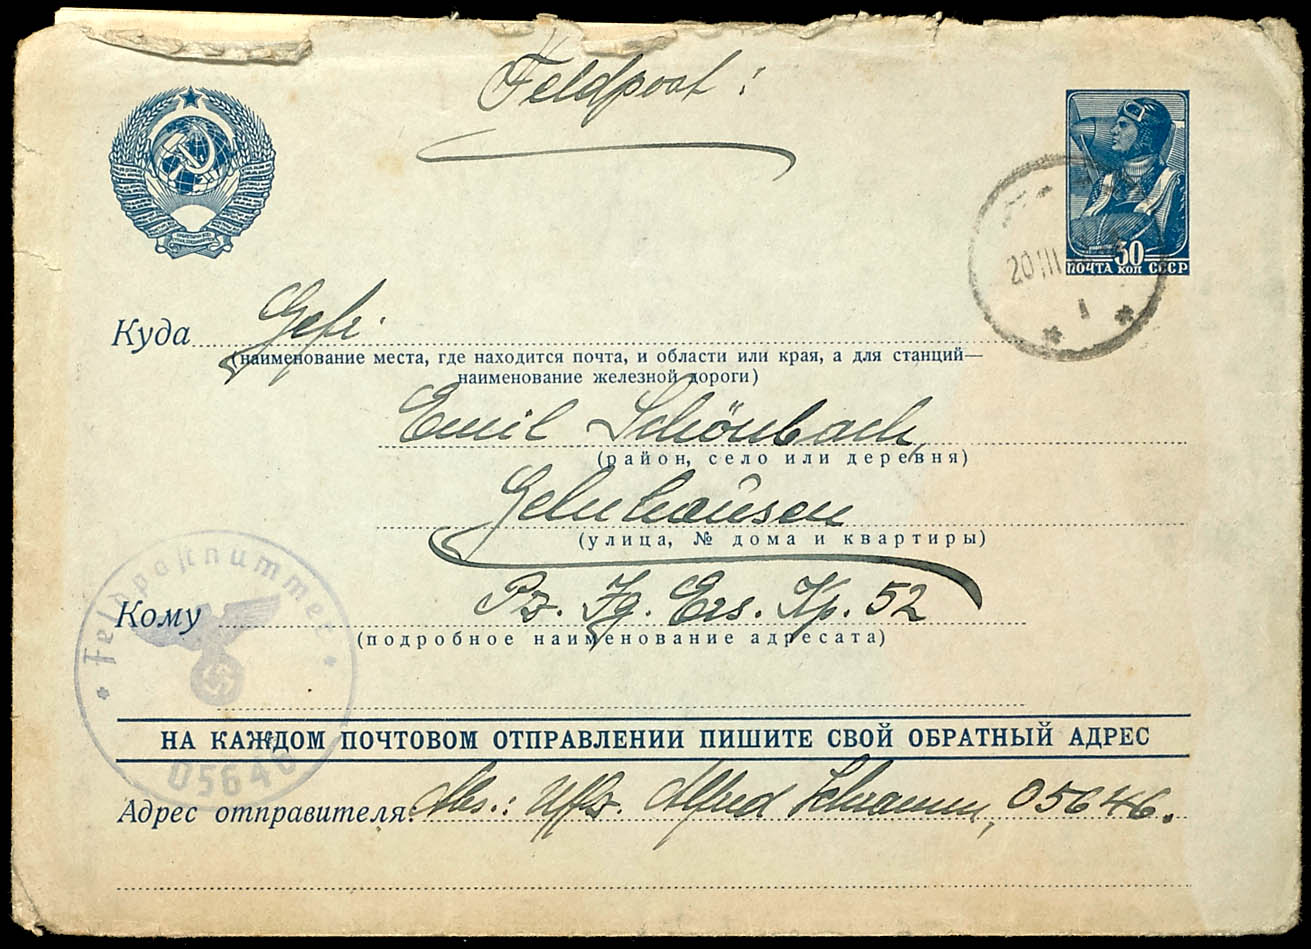 Feldpost:
30
ПОЧТА КОП СССР
20 III
1
Куда Gefr.
(наименование места, где находится почта, и области или края, а для станций—
наименование железной дороги)
Emil Schönbach,
(район, село или деревня)
Gelnhausen
(улица, № дома и квартиры)
Кому Pz. Jg. Ers. Kp. 52
(подробное наименование адресата)
Feldpostnummer
05646
НА КАЖДОМ ПОЧТОВОМ ОТПРАВЛЕНИИ ПИШИТЕ СВОЙ ОБРАТНЫЙ АДРЕС
Адрес отправителя: Abs.: Uffz. Alfred Schramm, 05646.